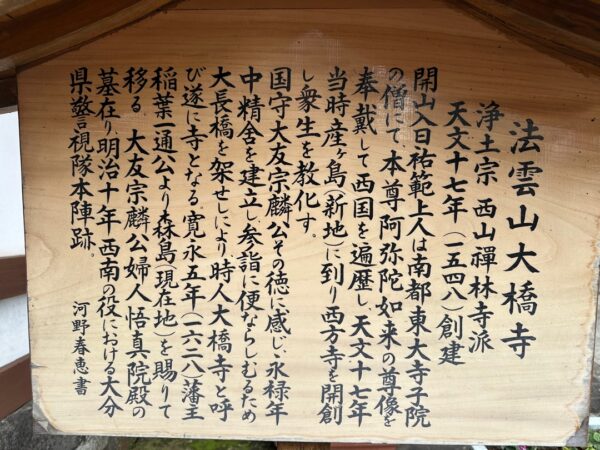 法雲山大橋寺
浄土宗 西山禪林寺派
天文十七年（一五四八）創建
開山入日祐範上人は南都東大寺子院
の僧にて、本尊阿弥陀如来の尊像を
奉戴して西国を遍歴し、天文十七年
当時産ヶ島（新地）に到り西方寺を開創
し衆生を教化す。
国守大友宗麟公その徳に感じ、永禄年
中精舎を建立し参詣に便ならしむるため
大長橋を架せしにより時人大橋寺と呼
び遂に寺となる。寛永五年（一六二八）藩主
稲葉一通公より森島（現在地）を賜りて
移る。大友宗麟公婦人悟真院殿の
墓在り、明治十年西南の役における大分
県警視隊本陣跡。
河野春恵書